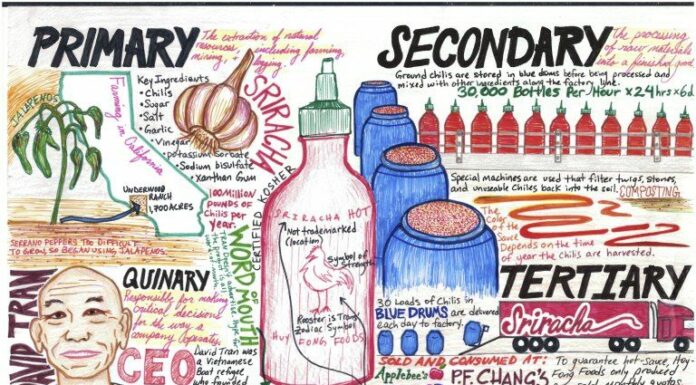 PRIMARY
The extraction of natural
resources, including farming,
mining, + logging.
JALAPENOS
Farming in California
Key Ingredients
• Chilis
• Sugar
• Salt
• Garlic
• Vinegar
• Potassium Sorbate
• Sodium bisulfate
• Xanthan Gum
UNDERWOOD
RANCH
1,700 ACRES
100 Million
POUNDS OF
Chilis per
Year.
SERRANO PEPPERS TOO DIFFICULT
TO GROW, SO BEGAN USING JALAPENOS.
SRIRACHA
CERTIFIED KOSHER
WORD OF MOUTH
SRIRACHA HOT
Not trademarked
(location)
Symbol of
Strength
Rooster is Trans
Zodiac Symbol
HUY FONG FOODS
SECONDARY
The processing
of raw materials
into a finished good.
Ground chilis are stored in blue drums before being processed and
mixed with other ingredients along the factory line.
30,000 Bottles Per Hour x 24 hrs x 6d.
Special machines are used that filter twigs, stones,
and unusable chiles back into the soil. COMPOSTING
The
Color
of the
Sauce
Depends on the time
of year the chilis are harvested.
QUINARY
Responsible for making
critical decisions
for the way a
company operates.
CEO
David Tran was
a Vietnamese
Boat refugee
who founded
TERTIARY
30 Loads of Chilis in
BLUE DRUMS are delivered
each day to factory.
Sriracha
SOLD AND CONSUMED AT:
Applebee's
P.F. CHANG'S
To guarantee hot sauce, Huy
Fong Foods only produced